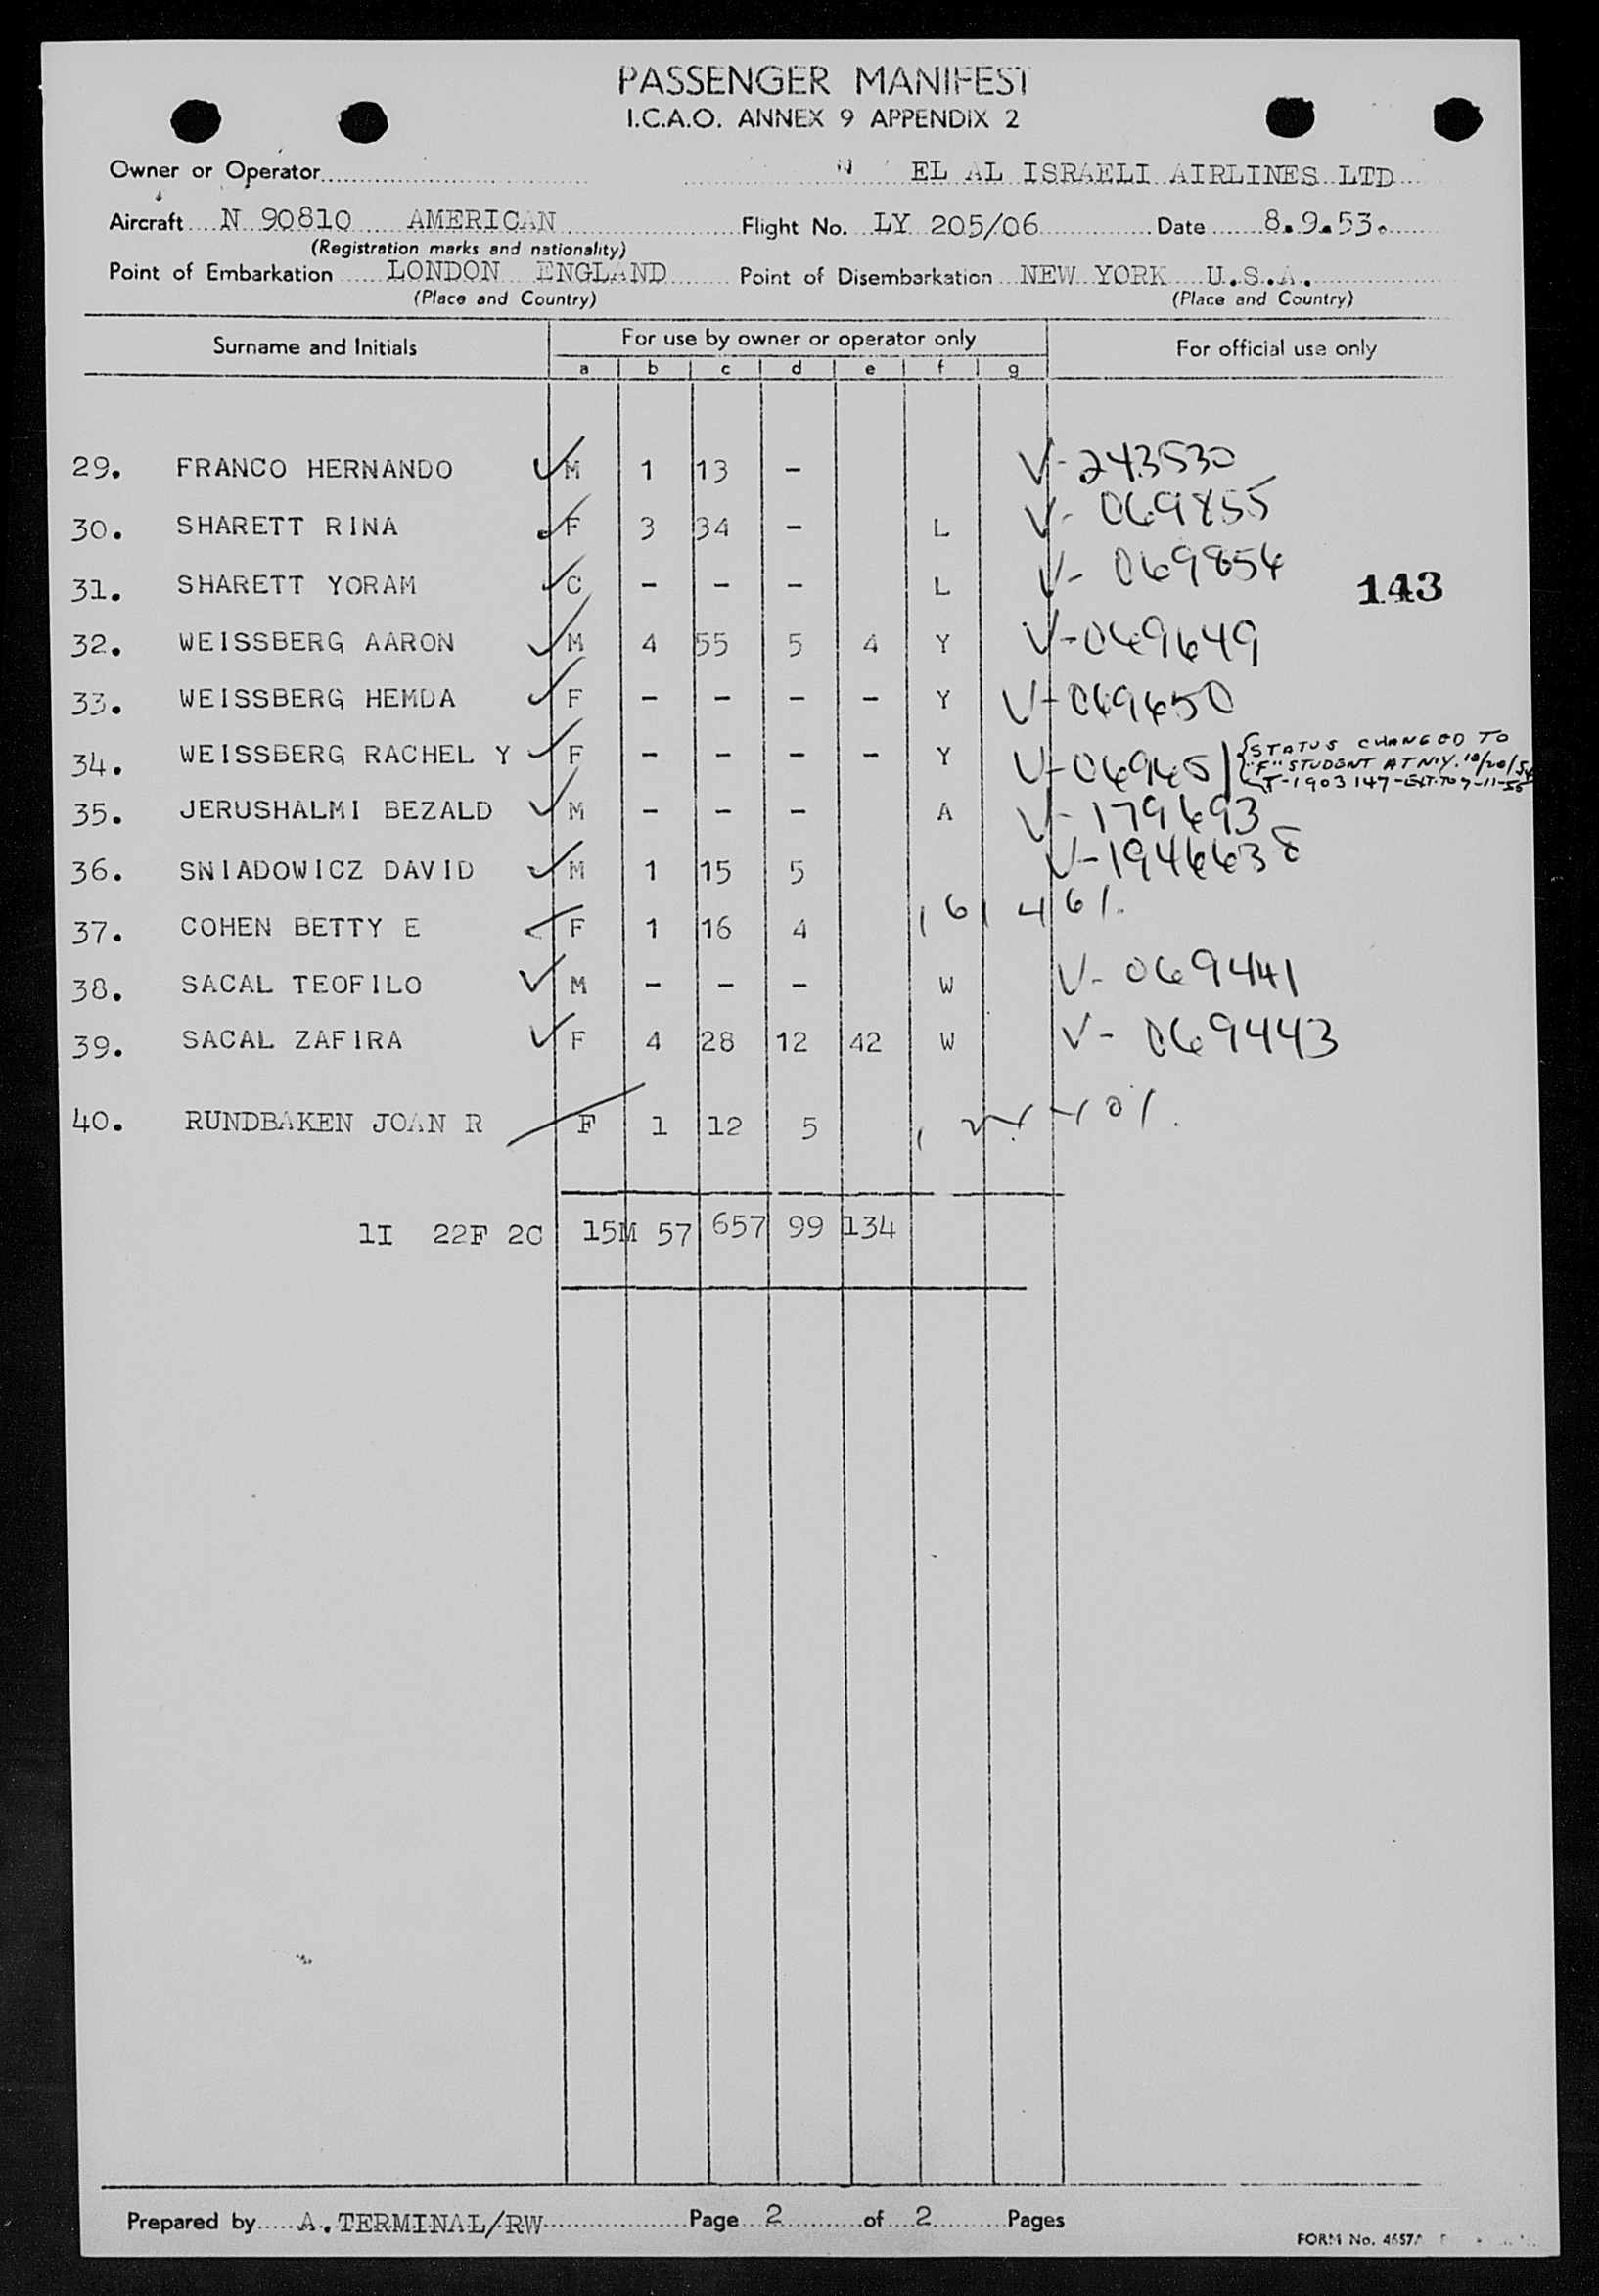 PASSENGER MANIFEST
I.C.A.O. ANNEX 9 APPENDIX 2
Owner or Operator EL AL ISRAELI AIRLINES LTD
Aircraft N 90810 AMERICAN Flight No. LY 205/06 Date 8.9.53.
(Registration marks and nationality)
Point of Embarkation LONDON ENGLAND Point of Disembarkation NEW YORK U.S.A.
(Place and Country) (Place and Country)
Surname and Initials For use by owner or operator only For official use only
a b c d e f g
29. FRANCO HERNANDO M 1 13 - V-243530
30. SHARETT RINA F 3 34 - L V-069855
31. SHARETT YORAM C - - - L V-069856
143
32. WEISSBERG AARON M 4 55 5 4 Y V-069649
33. WEISSBERG HEMDA F - - - - Y V-069650
34. WEISSBERG RACHEL Y F - - - - Y V-069651 {STATUS CHANGED TO
"F" STUDENT AT NIY. 10/20/54
T-1903147-EXT. TO 7-11-55
35. JERUSHALMI BEZALD M - - - A V-179693
36. SNIADOWICZ DAVID M 1 15 5 V-1946638
37. COHEN BETTY E F 1 16 4
38. SACAL TEOFILO M - - - W V-069441
39. SACAL ZAFIRA F 4 28 12 42 W V-069443
40. RUNDBAKEN JOAN R F 1 12 5
1I 22F 2C 15M 57 657 99 134
Prepared by A.TERMINAL/RW Page 2 of 2 Pages
FORM No. 4657